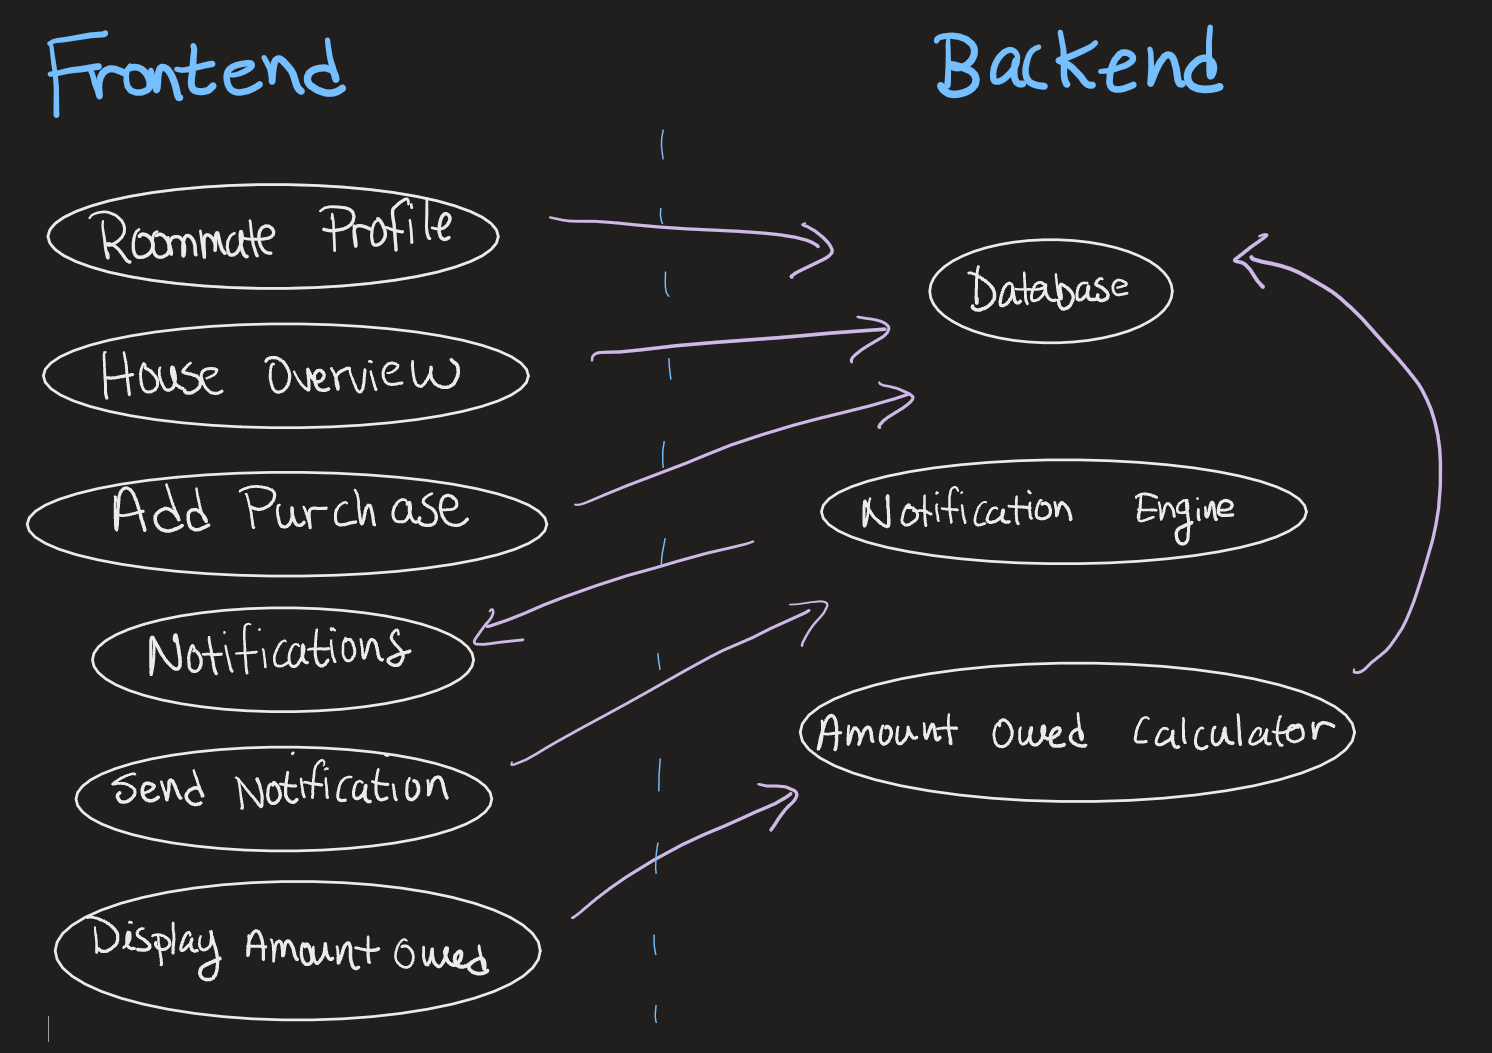 Frontend
Backend
Roommate Profile
House Overview
Add Purchase
Notifications
Send Notification
Display Amount Owed
Database
Notification Engine
Amount Owed Calculator